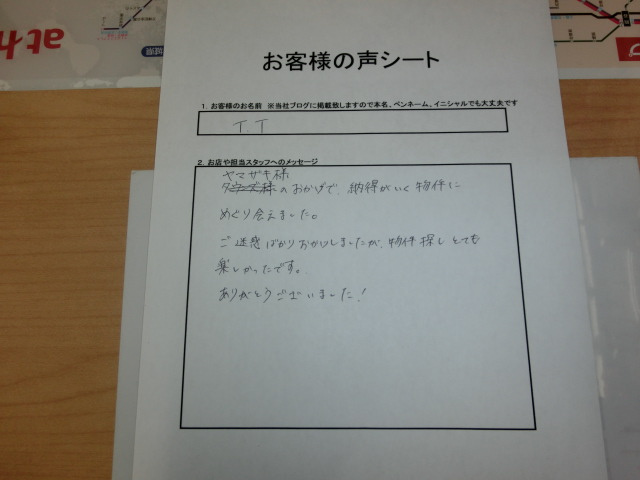 at h
お客様の声シート
1. お客様のお名前 ※当社ブログに掲載致しますので本名、ペンネーム、イニシャルでも大丈夫です
T T
2. お店や担当スタッフへのメッセージ
ヤマザキ様
のおかげで、納得がいく物件に
めぐり会えました。
ご迷惑ばかりおかけしましたが、物件探しとても
楽しかったです。
ありがとうございました!